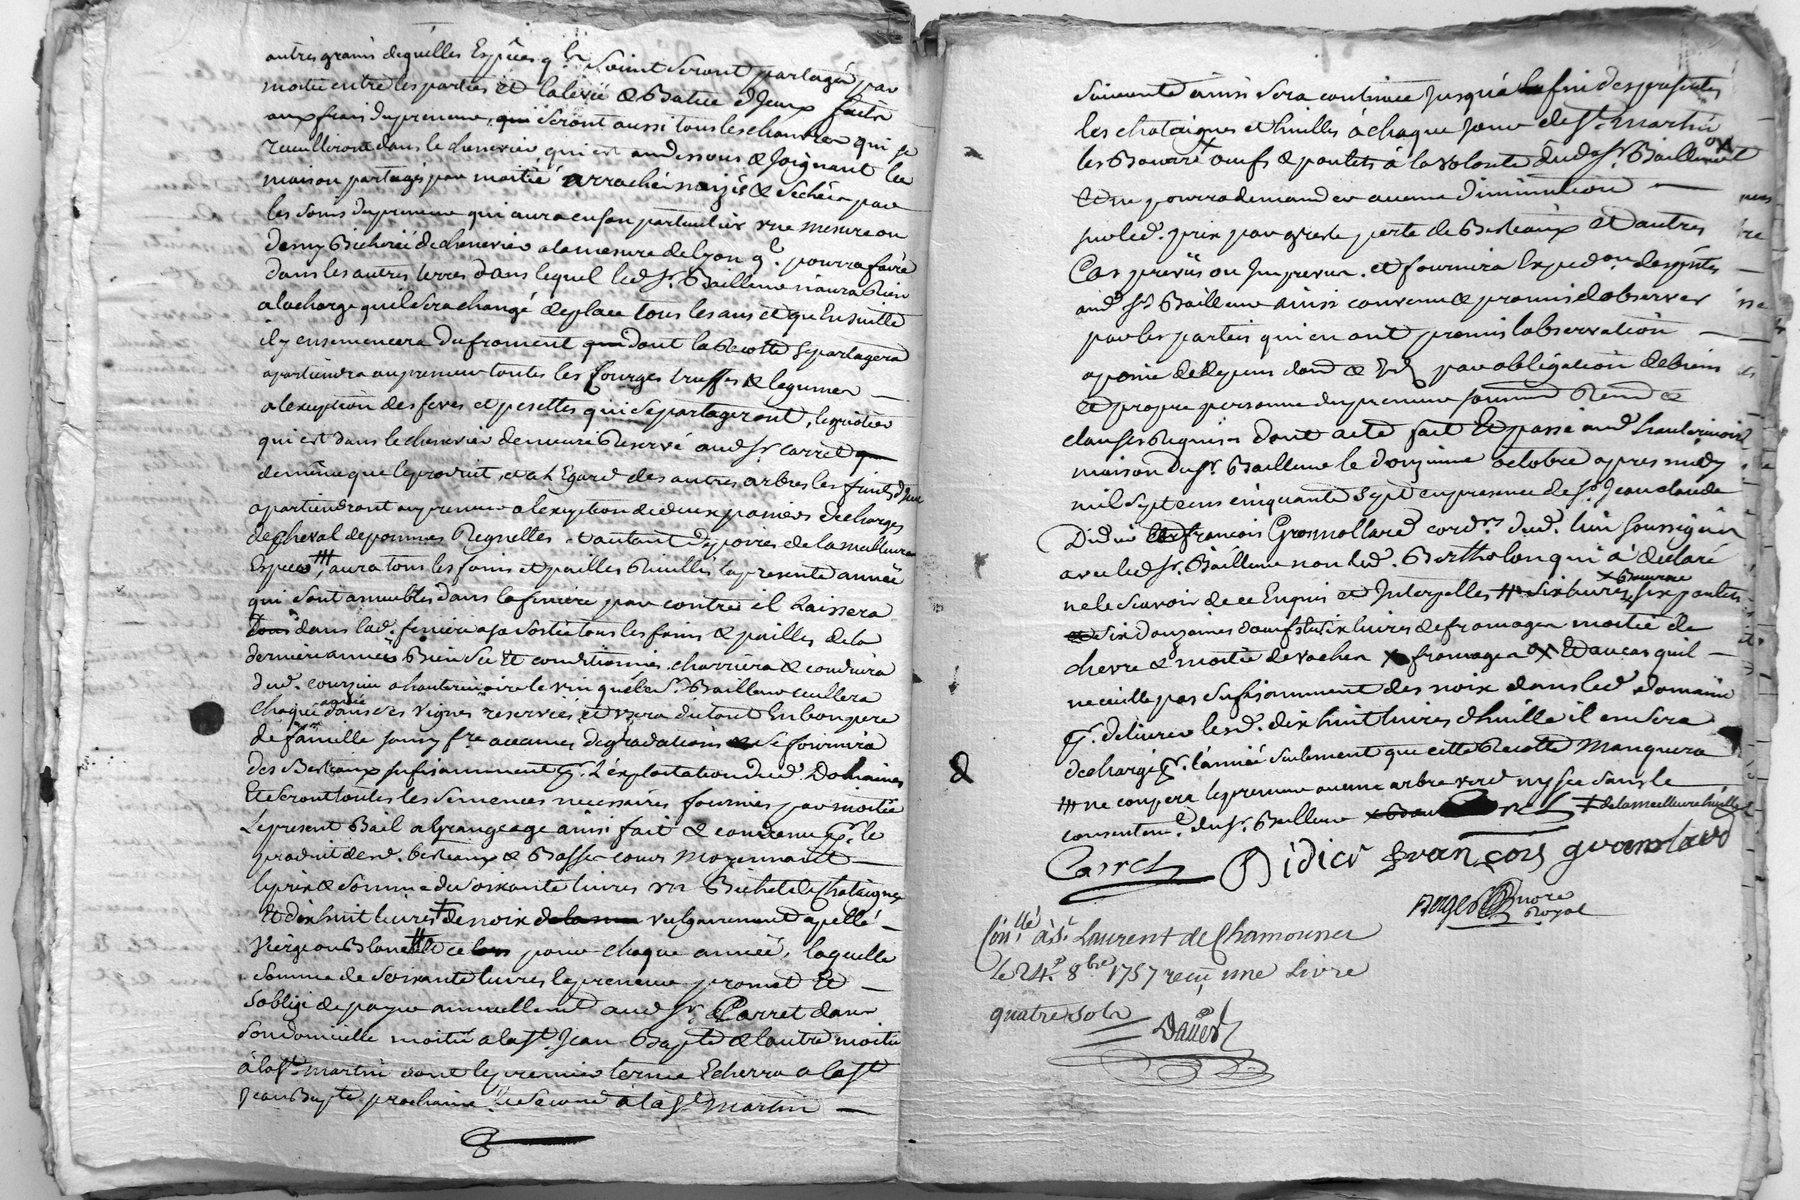 autres grains dequelles Espèces q.ls soint seront partagés par
moitié entre les parties et la levée & Batue d'Iceux faitte
aux frais du preneur, qui seront aussi tous les chanvres qui se
recuilliront dans le chenevier qui est au dessous & Joignant la
maison partagés par moitié arrachés naizés & séchés par
les soins du preneur qui aura en son particulier une mesure ou
demy Bicherée de chenevier a la mesure de Lyon q.l pourra faire
dans les autres terres dans lequel led. Sr. Bailleur n'aura Rien
a la charge quil sera changé de place tous les ans et que Ensuitte
il y ensemencera du froment dont la Recolte se partagera
apartiendra au preneur toutes les Courges truffes & legumes
a l'exeption des feves et pesettes qui se partageront,
qui est dans le chenevier demeure Reservé aud. Sr. Carret
de même que le produit, et a L'Egard des autres arbres les fruits d'Iceux
apartiendront au preneur a l'exeption de deux paniers de charges
de cheval de pommes Regnettes & autant de poires de la meilleure
Espece ttt, aura tous les foins et pailles Rieulles la presente année
qui sont ameublés dans la feniere par contre il Laissera
dans lad. feniere a sa sortie tous les foins & pailles de la
derniere année Bien Sec Et conditionnés charriera & conduira
dud. Courzieu a hauterivoire le vin que led. Sr. Bailleur cuillera
chaque année dans ses vignes reservées et usera du tout En bon pere
de famille sans y fre aucunes degradations se fournira
des Bestiaux sufisamment pr. L'exploitation dud. Domaines
Et seront toutes les semences necessaires fournies par moitié
Le present Bail a Grangeage ainsi fait & convenu pr. le
produit desd. bestiaux & Basse cour Moyennant
le prix & somme de soixante livres un Bichet de Chataignes
Et dix huit livres + de noix vulgairement apellé
Vierge ou Blanche tt & ce pour chaque année, laquelle
somme de soixante livres le preneur promet Et
s'oblige de payer annuellement aud. Sr. Carret dans
son domicille moitié a la St. Jean Bapte & l'autre moitié
à la St. martin dont le premier terme Echerra a la St
Jean Bapte prochaine & le second à la St. martin
suivante ainsi sera continué Jusqu'à la fin des presentes
les chataignes et huilles à chaque Jour de St. martin
les Beurre x oeufs & poulets à la volonté dud. Sr. Bailleur
Et ne pourra demander aucune diminution
sur led. prix par gresle perte de Bestiaux Et autres
Cas prevüs ou Imprevus. et fournira Expedon. desptes
aud. Sr. Bailleur ainsi convenu & promis d'observer
par les parties qui en ont promis l'observation
a peine de depens dom. & par obligation de biens
et propre personne du preneur soumn. Renon. &
clauses Requises dont acte fait Et passé aud. hauterivoire
maison dud. Sr. Bailleur le douzieme octobre apres midy
mil sept cens cinquante sept en presence de Sr. Jean claude
Didier et françois Gromollard cordrs. dud. lieu soussignés
avec led. Sr. Bailleur non led. Bertholon qui a declaré
ne le scavoir de ce Enquis et Interpellés tt six livres x Beurre six poulets
six douzaines d'oeufs six livres de fromages moitié de
chevre & moitié de vaches x fromages ox Et au cas quil
ne cuille pas sufisamment des noix dans led. domaine
pr. delivrer lesd. dix huit livres d'huille il en sera
dechargé pr. l'année seulement que cette Recolte Manquera
ttt ne coupera le preneur aucun arbre verd ny sec sans le
consentemt. dud. Sr. Bailleur + de la meilleure huille
Carret Didier françois gromolard
Berger Nore
Royal
Conllé à St. Laurent de Chamousset
le 24e 8bre 1757 reçu une Livre
quatre sols